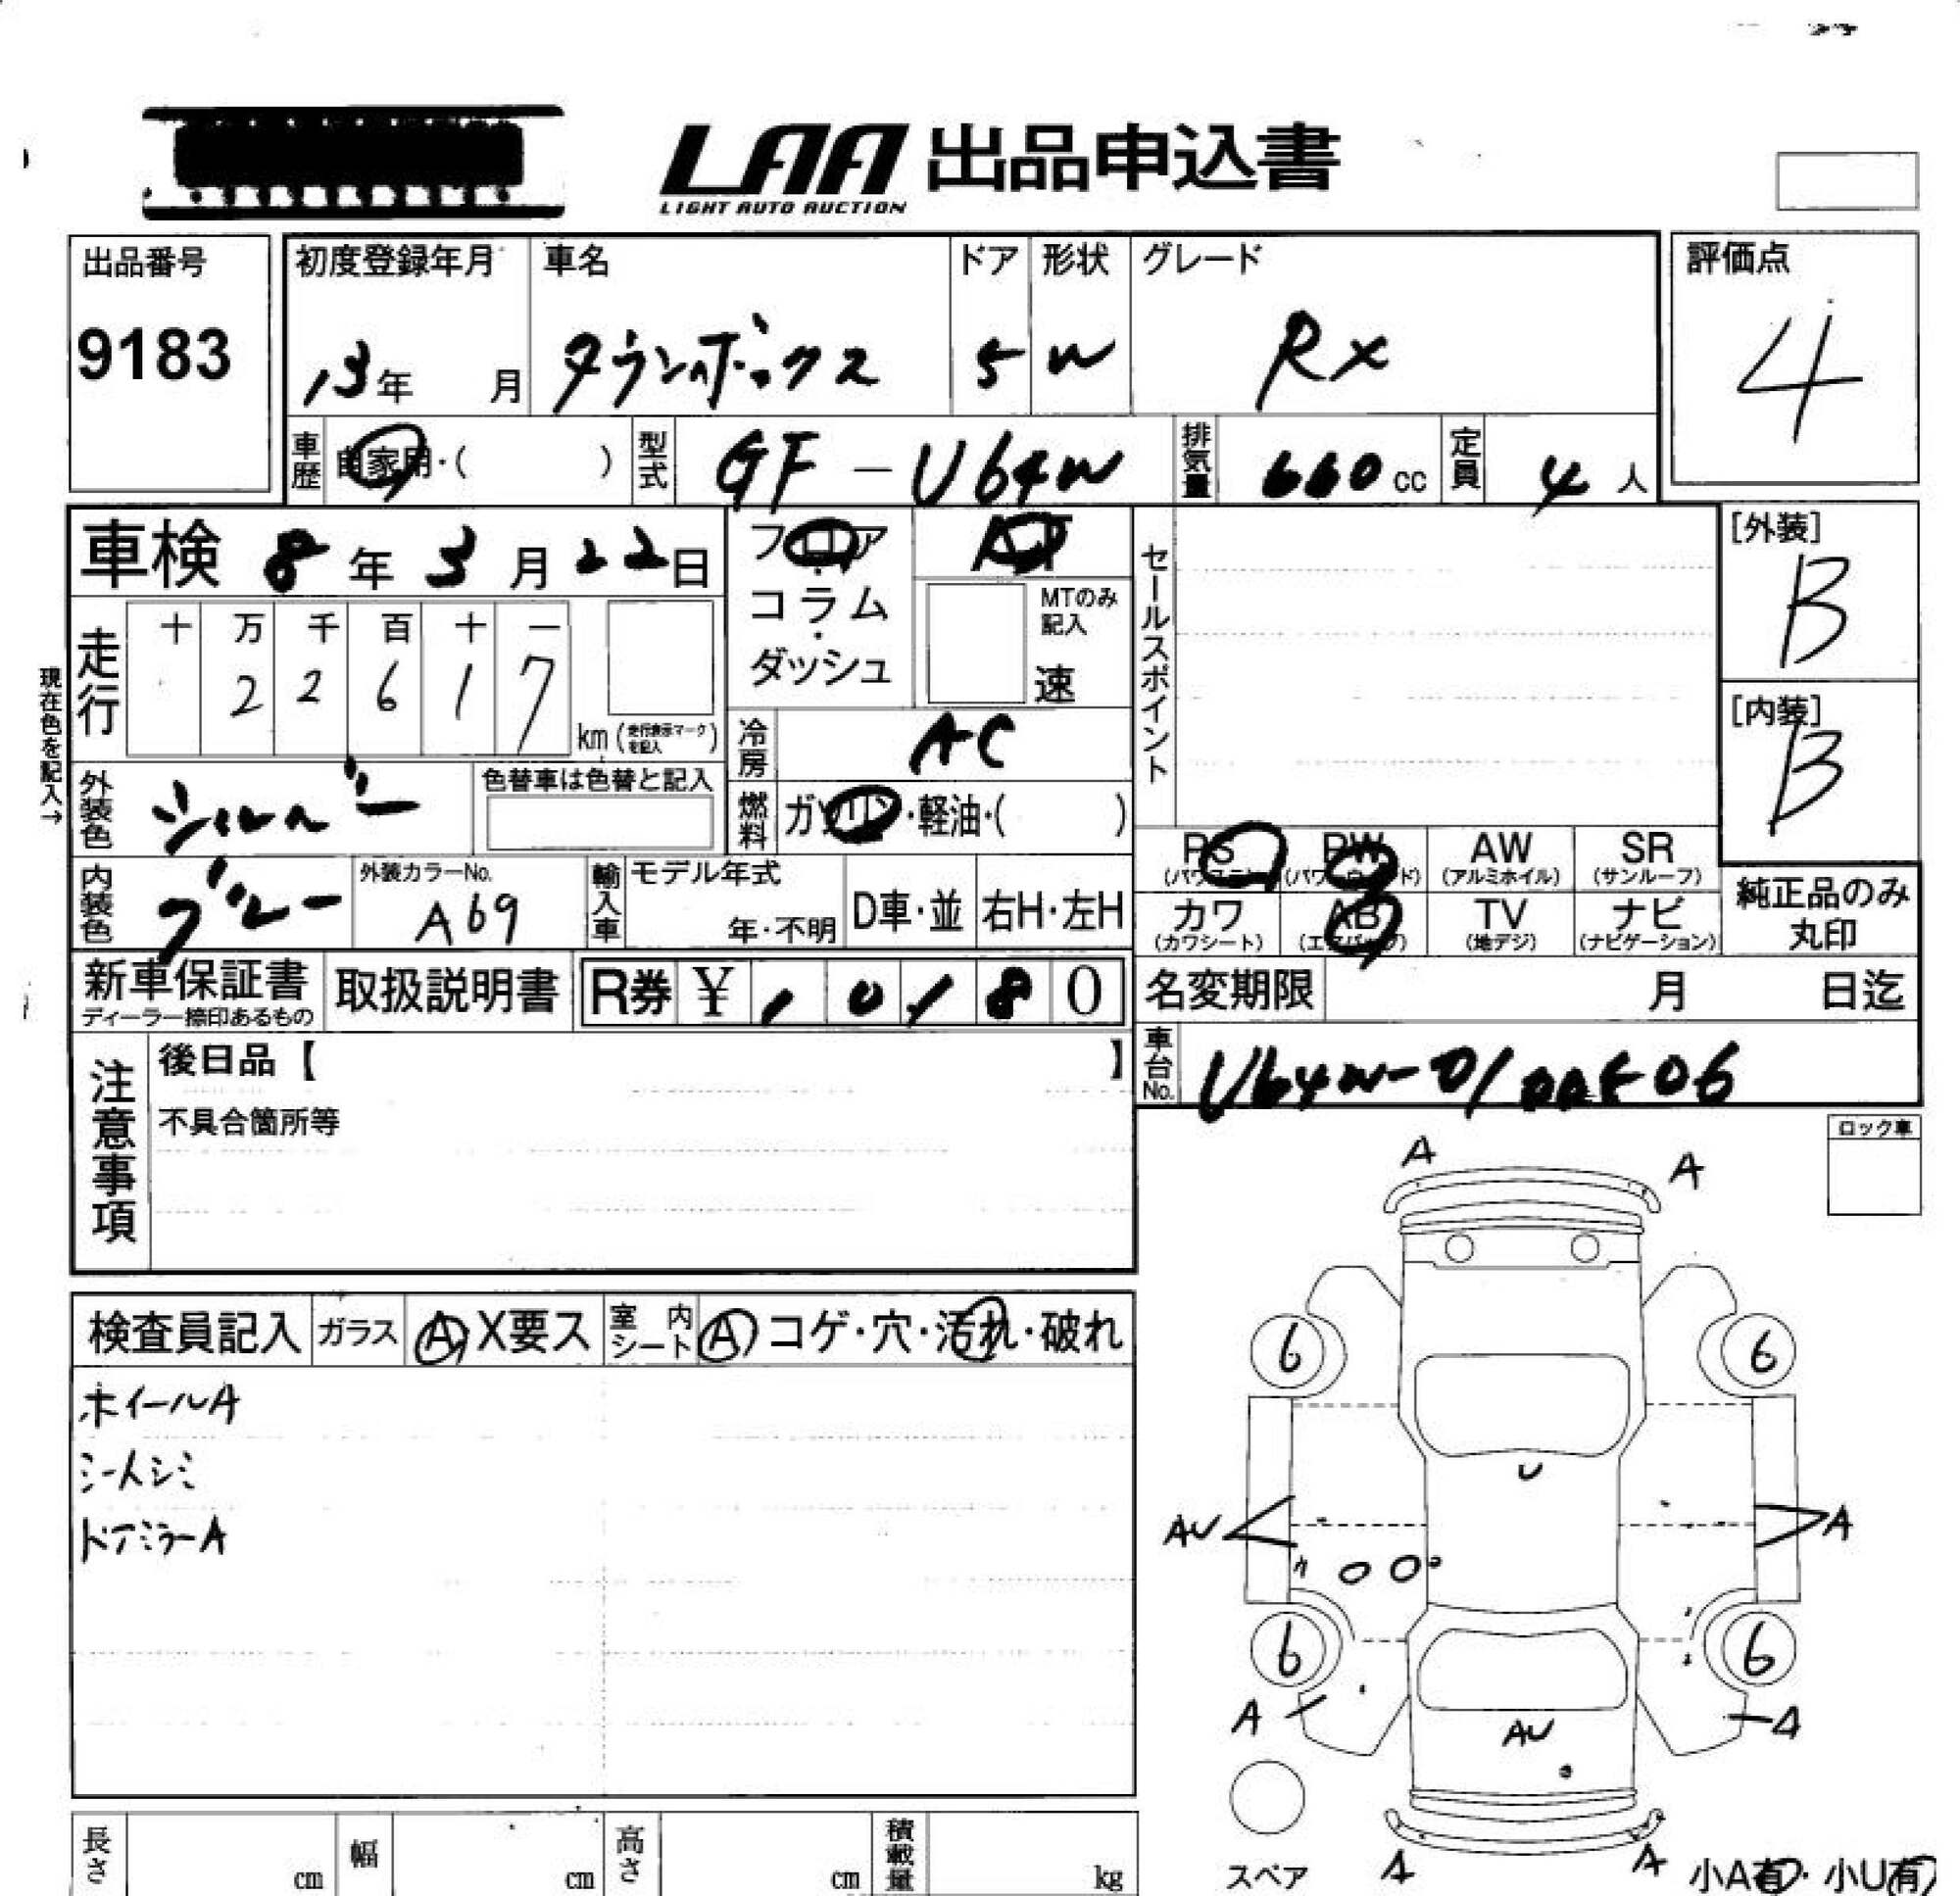 LAA 出品申込書
LIGHT AUTO AUCTION
出品番号
9183
初度登録年月 車名 ドア 形状 グレード
13年 月 タウンボックス 5 W RX
評価点
4
車歴 自家用・( ) 型式 GF-U64W 排気量 660cc 定員 4人
車検 8年3月22日
フロア・コラム・ダッシュ
AT
MTのみ記入
速
セールスポイント
[外装]
B
[内装]
B
現在色を記入→
走行 十 万 千 百 十 一
2 2 6 1 7 km (走行表示マークを記入)
冷房 AC
外装色 シルバー 色替車は色替と記入
燃料 ガソリン・軽油・( )
内装色 ブルー 外装カラーNo. A69 輸入車 モデル年式 年・不明 D車・並 右H・左H
PS (パワステ) PW (パワーウィンド) AW (アルミホイル) SR (サンルーフ)
カワ (カワシート) AB (エアバッグ) TV (地デジ) ナビ (ナビゲーション)
純正品のみ丸印
新車保証書 取扱説明書 R券 ¥ 1 0 1 8 0
ディーラー捺印あるもの
名変期限 月 日迄
車台No. U64W-0100506
注意事項
後日品【 】
不具合箇所等
ロック車
検査員記入 ガラス A X要ス 室内シート A コゲ・穴・汚れ・破れ
ホイールA
シートシミ
ドアミラーA
A A
6 6
U
AU A
6 6
A A
AU
スペア
A A
小A有・小U有
長さ cm 幅 cm 高さ cm 積載量 kg